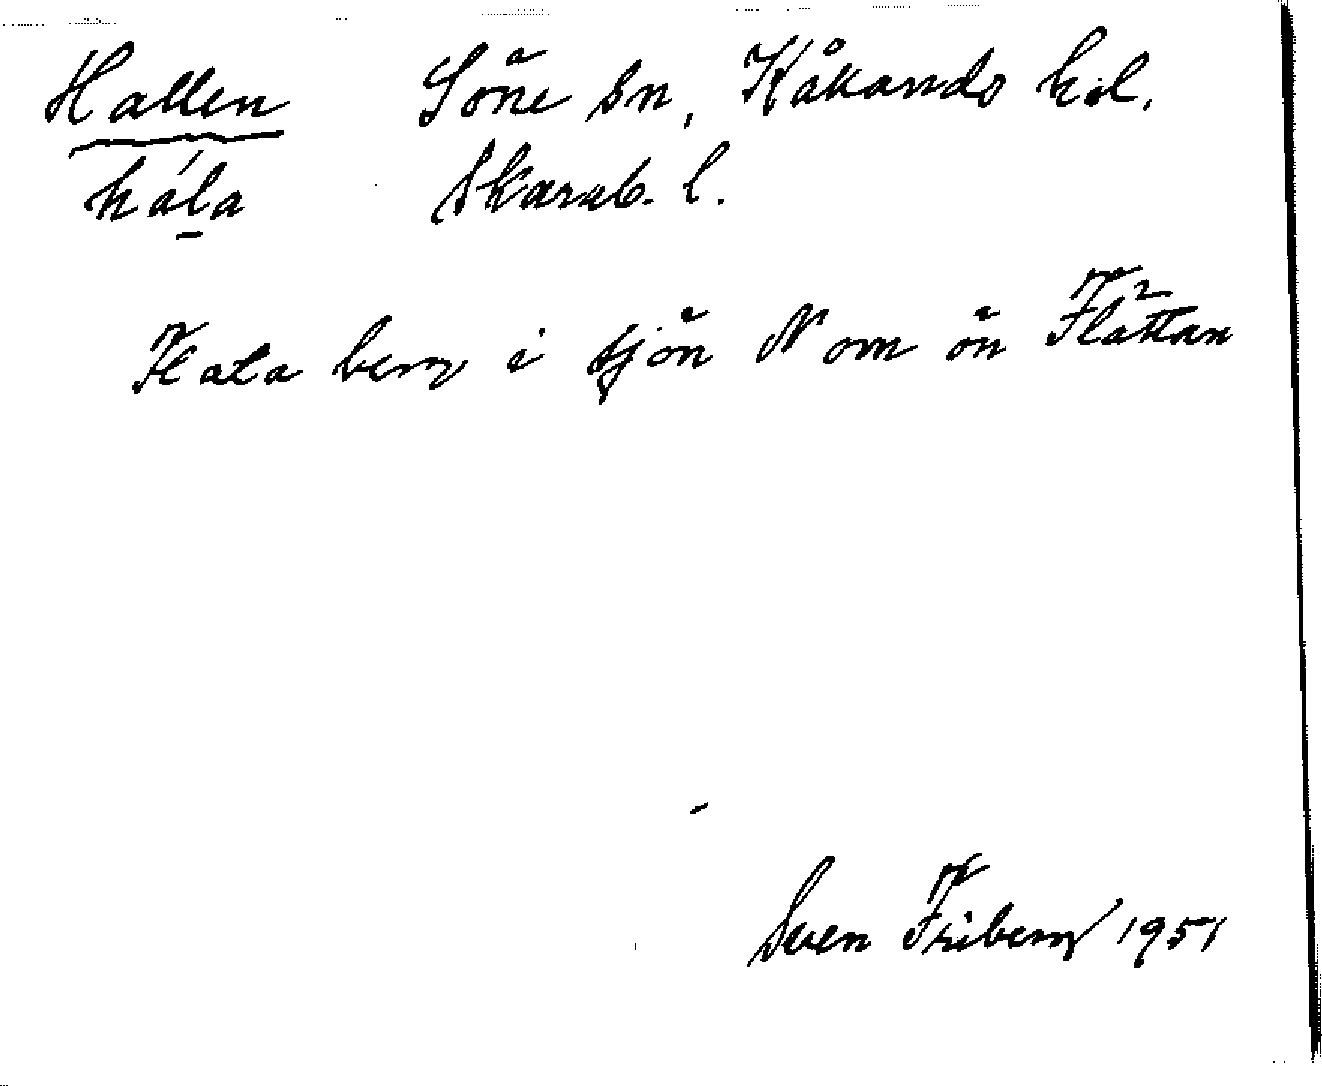 Hallen Söne sn, Kålands hd.
hála Skarab. l.
Kala berg i sjön N om ön Flättan
Sven Friberg 1951